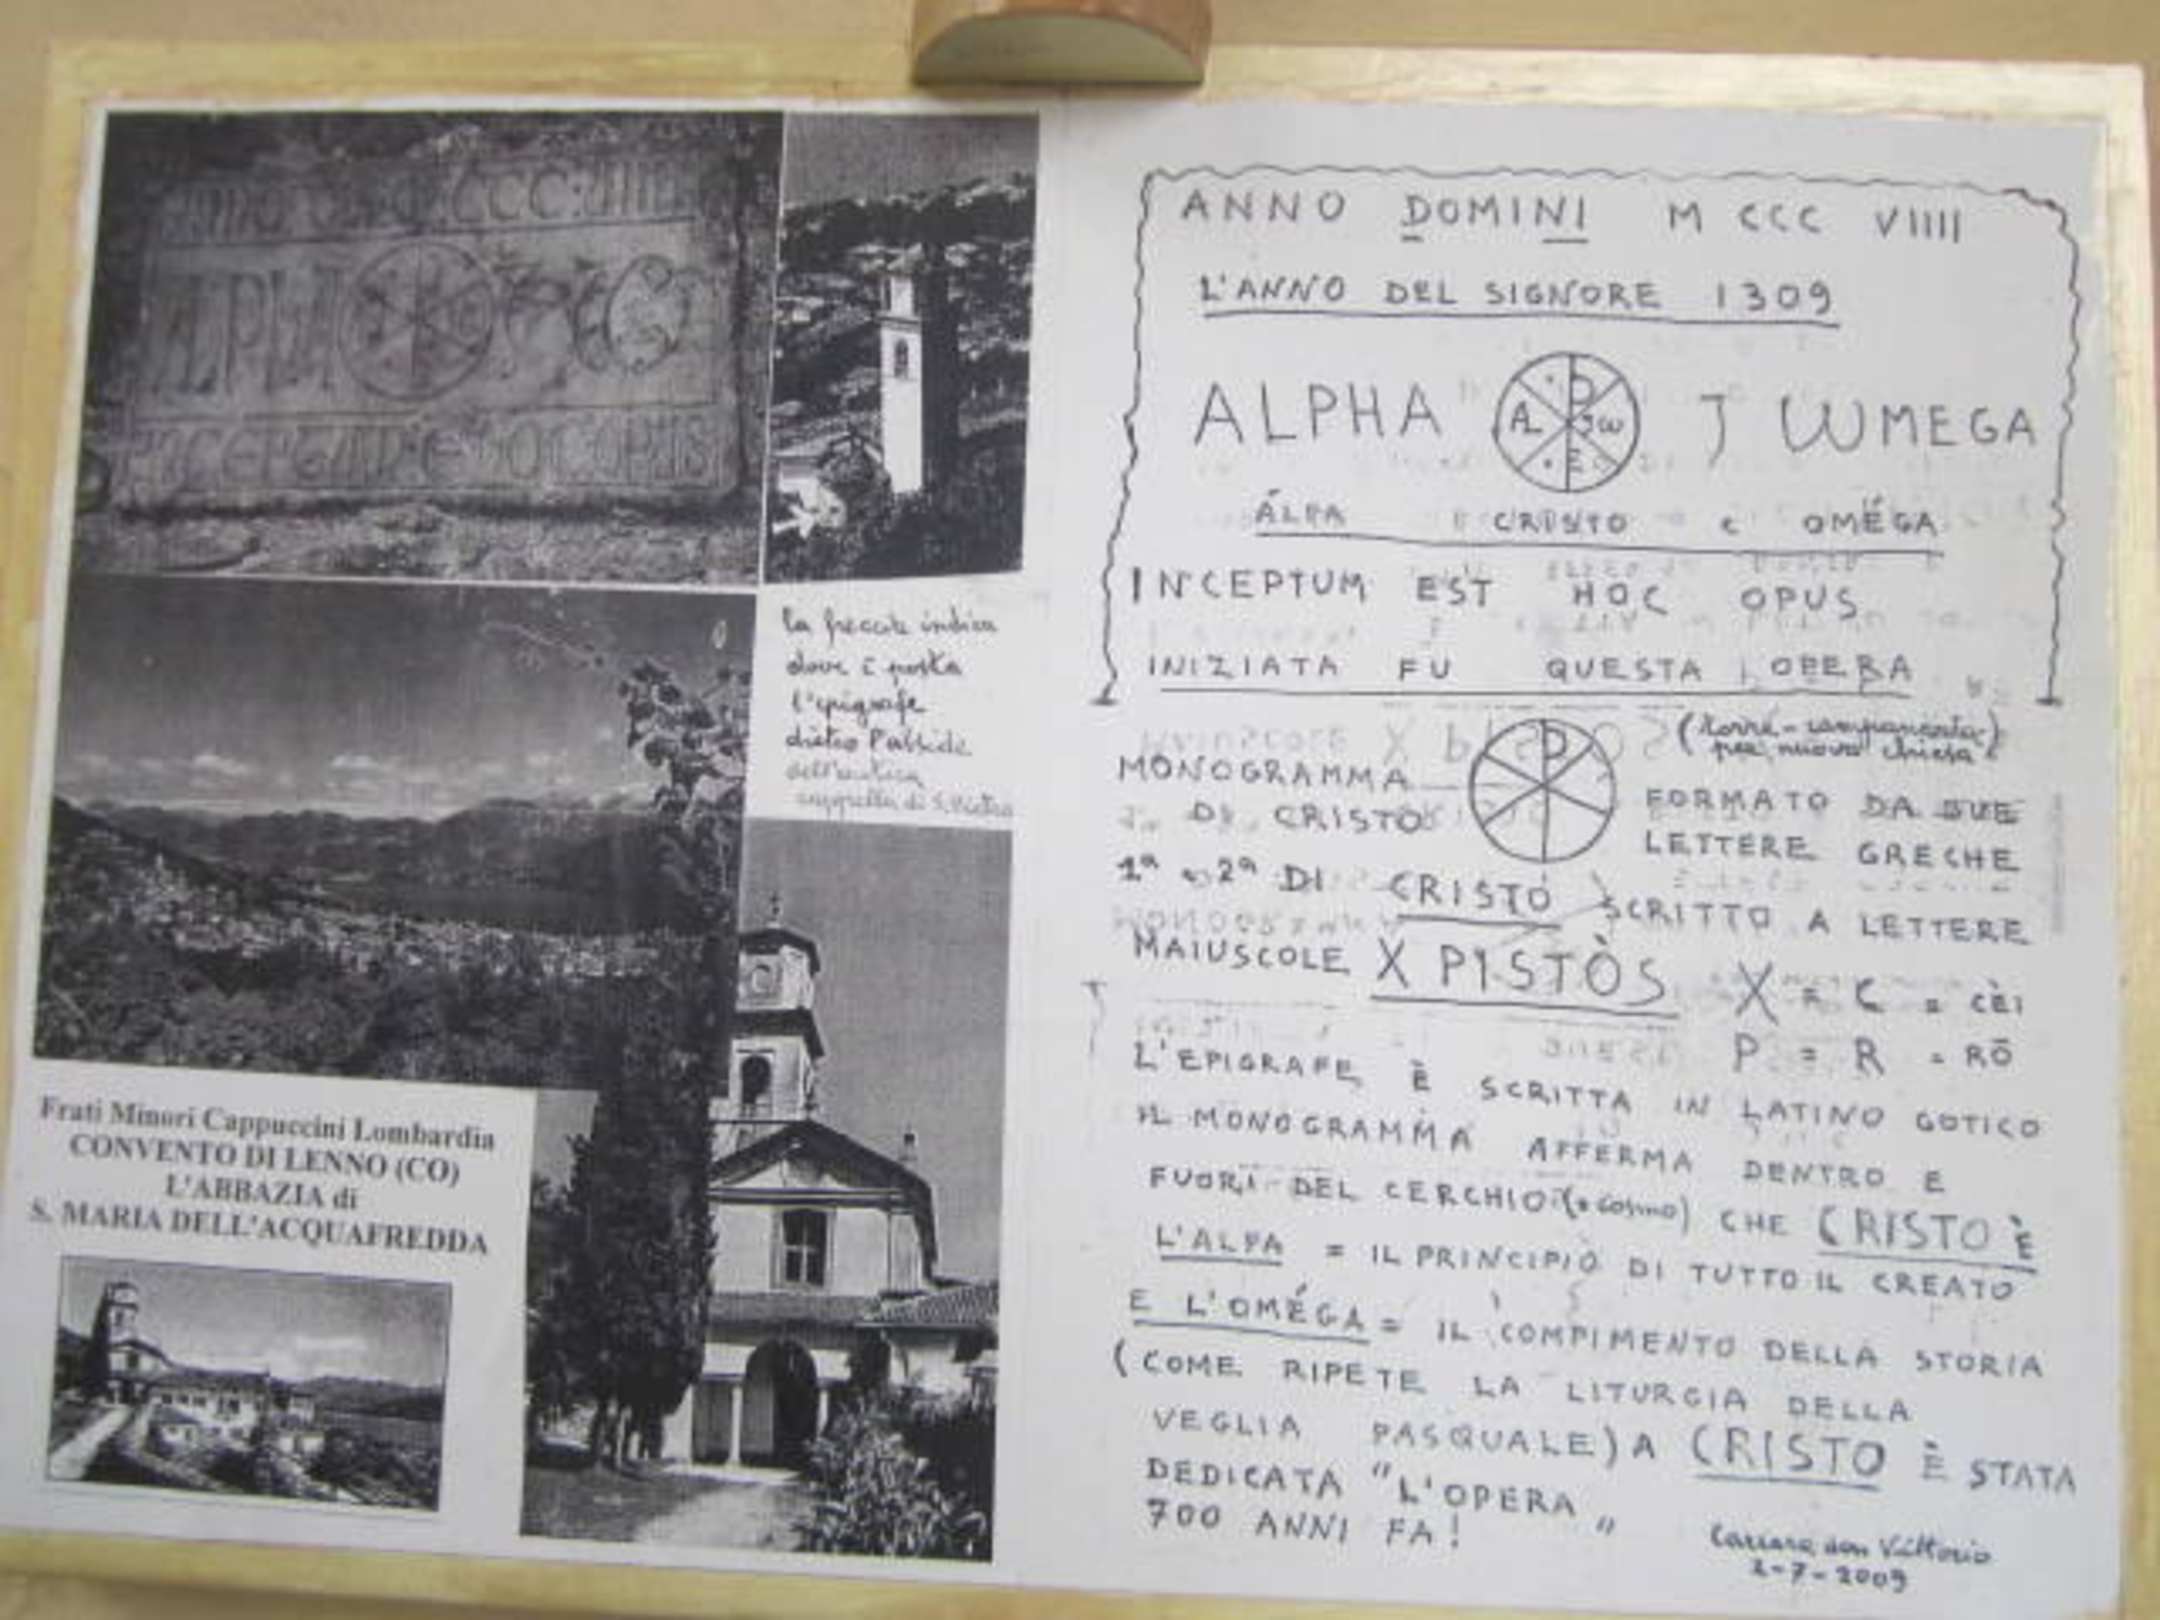 la freccia indica
dove è posta
l'epigrafe
dietro l'abside
dell'antica
cappella di S. Pietro
Frati Minori Cappuccini Lombardia
CONVENTO DI LENNO (CO)
L'ABBAZIA di
S. MARIA DELL'ACQUAFREDDA
ANNO DOMINI M CCC VIIII
L'ANNO DEL SIGNORE 1309
ALPHA J ωMEGA
AL D Jω E
ÁLFA CRISTO e OMÉGA
INCEPTUM EST HOC OPUS
INIZIATA FU QUESTA OPERA
(torre-campanaria)
per nuova chiesa
MONOGRAMMA
DI CRISTO
FORMATO DA DUE
LETTERE GRECHE
1ª e 2ª DI CRISTO SCRITTO A LETTERE
MAIUSCOLE X PISTÒS X = C = CÈI
P = R = RŌ
L'EPIGRAFE È SCRITTA IN LATINO GOTICO
IL MONOGRAMMA AFFERMA DENTRO E
FUORI DEL CERCHIO (= cosmo) CHE CRISTO È
L'ALFA = IL PRINCIPIO DI TUTTO IL CREATO
E L'OMÉGA = IL COMPIMENTO DELLA STORIA
(COME RIPETE LA LITURGIA DELLA
VEGLIA PASQUALE) A CRISTO È STATA
DEDICATA "L'OPERA"
700 ANNI FA!
Carrara don Vittorio
2-7-2009